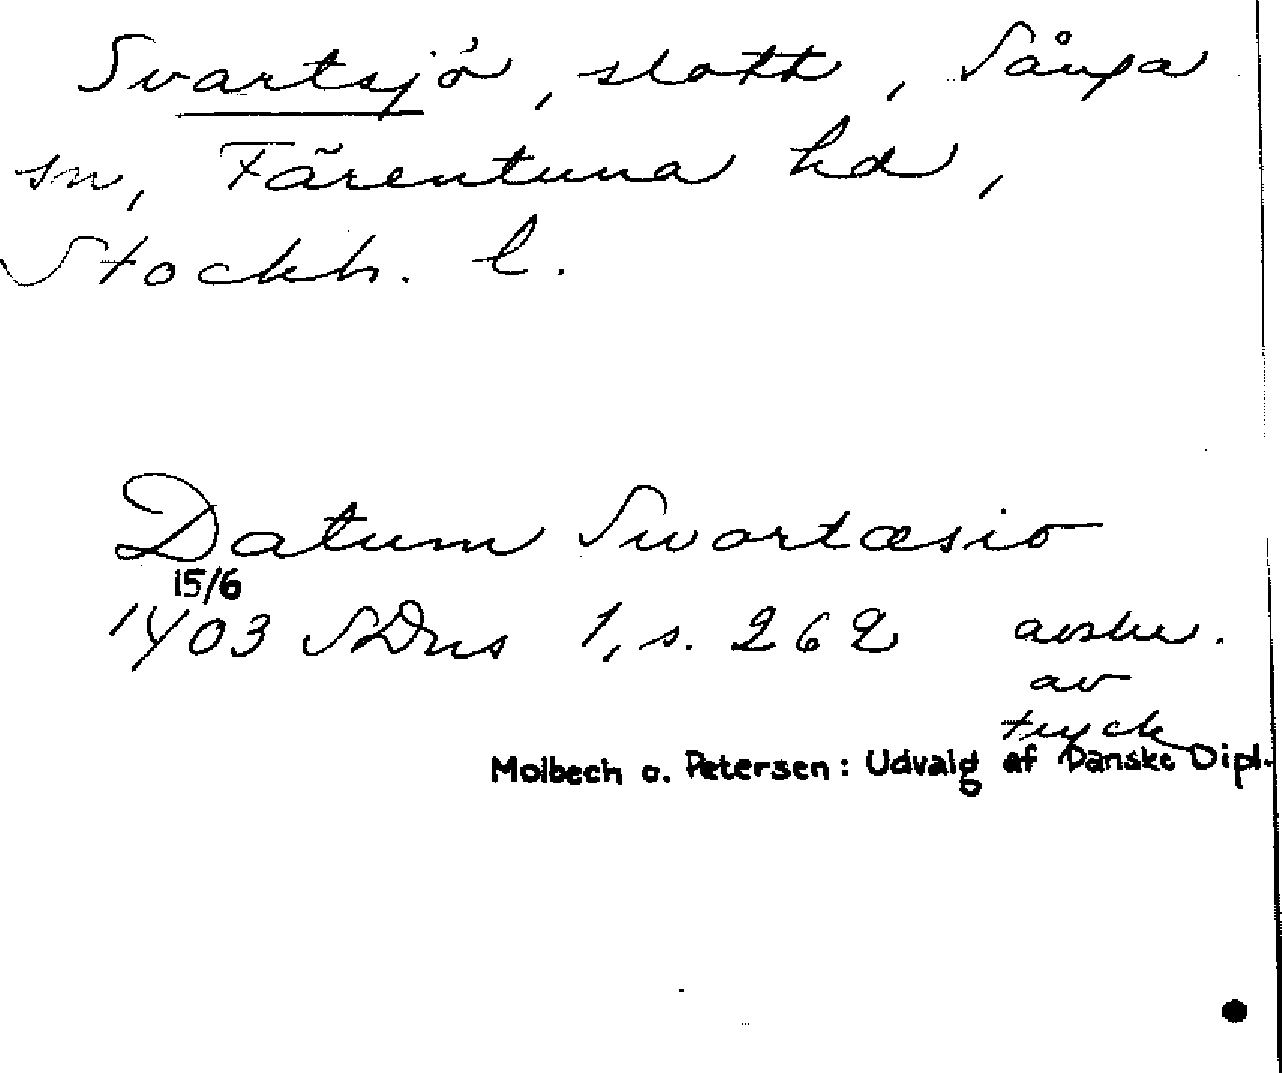 Svartsjö, slott, Sånga
sn, Färentuna hd,
Stockh. l.
Datum Swortæsio
15/6
1403 SDns 1, s. 262 avskr.
av
tryck
Molbech o. Petersen: Udvalg af Danske Dipl.